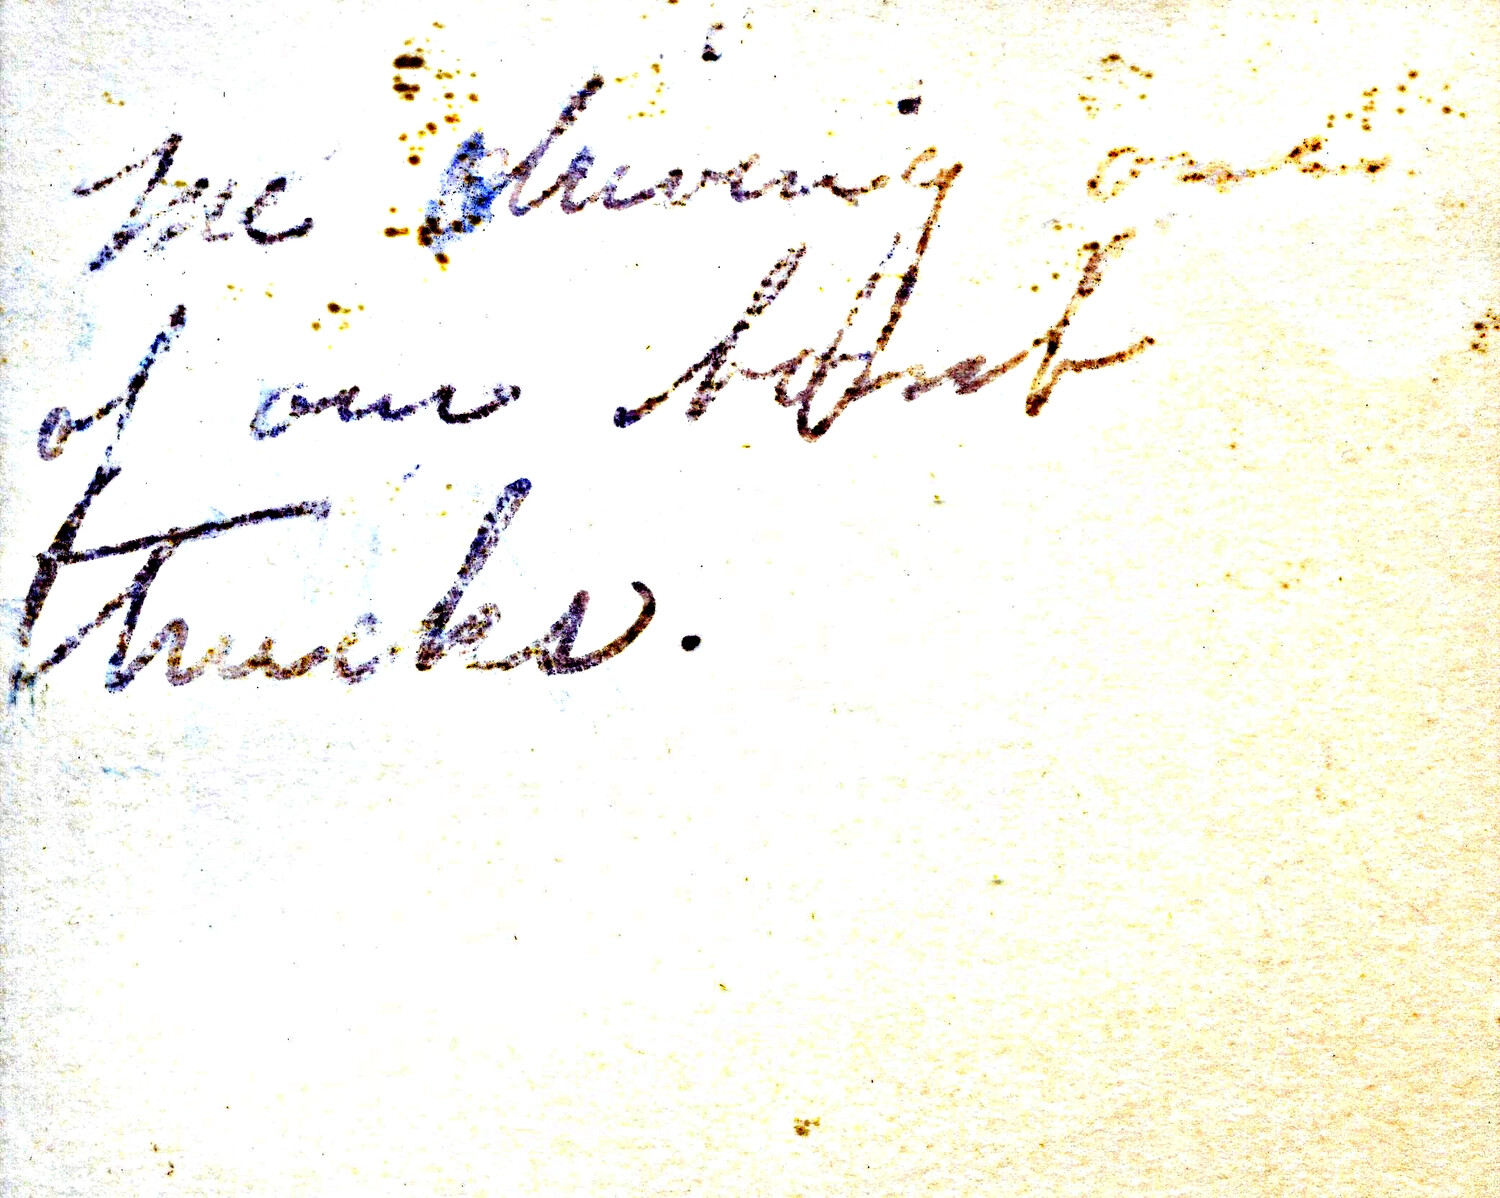 Me driving one
of our bomb
trucks.